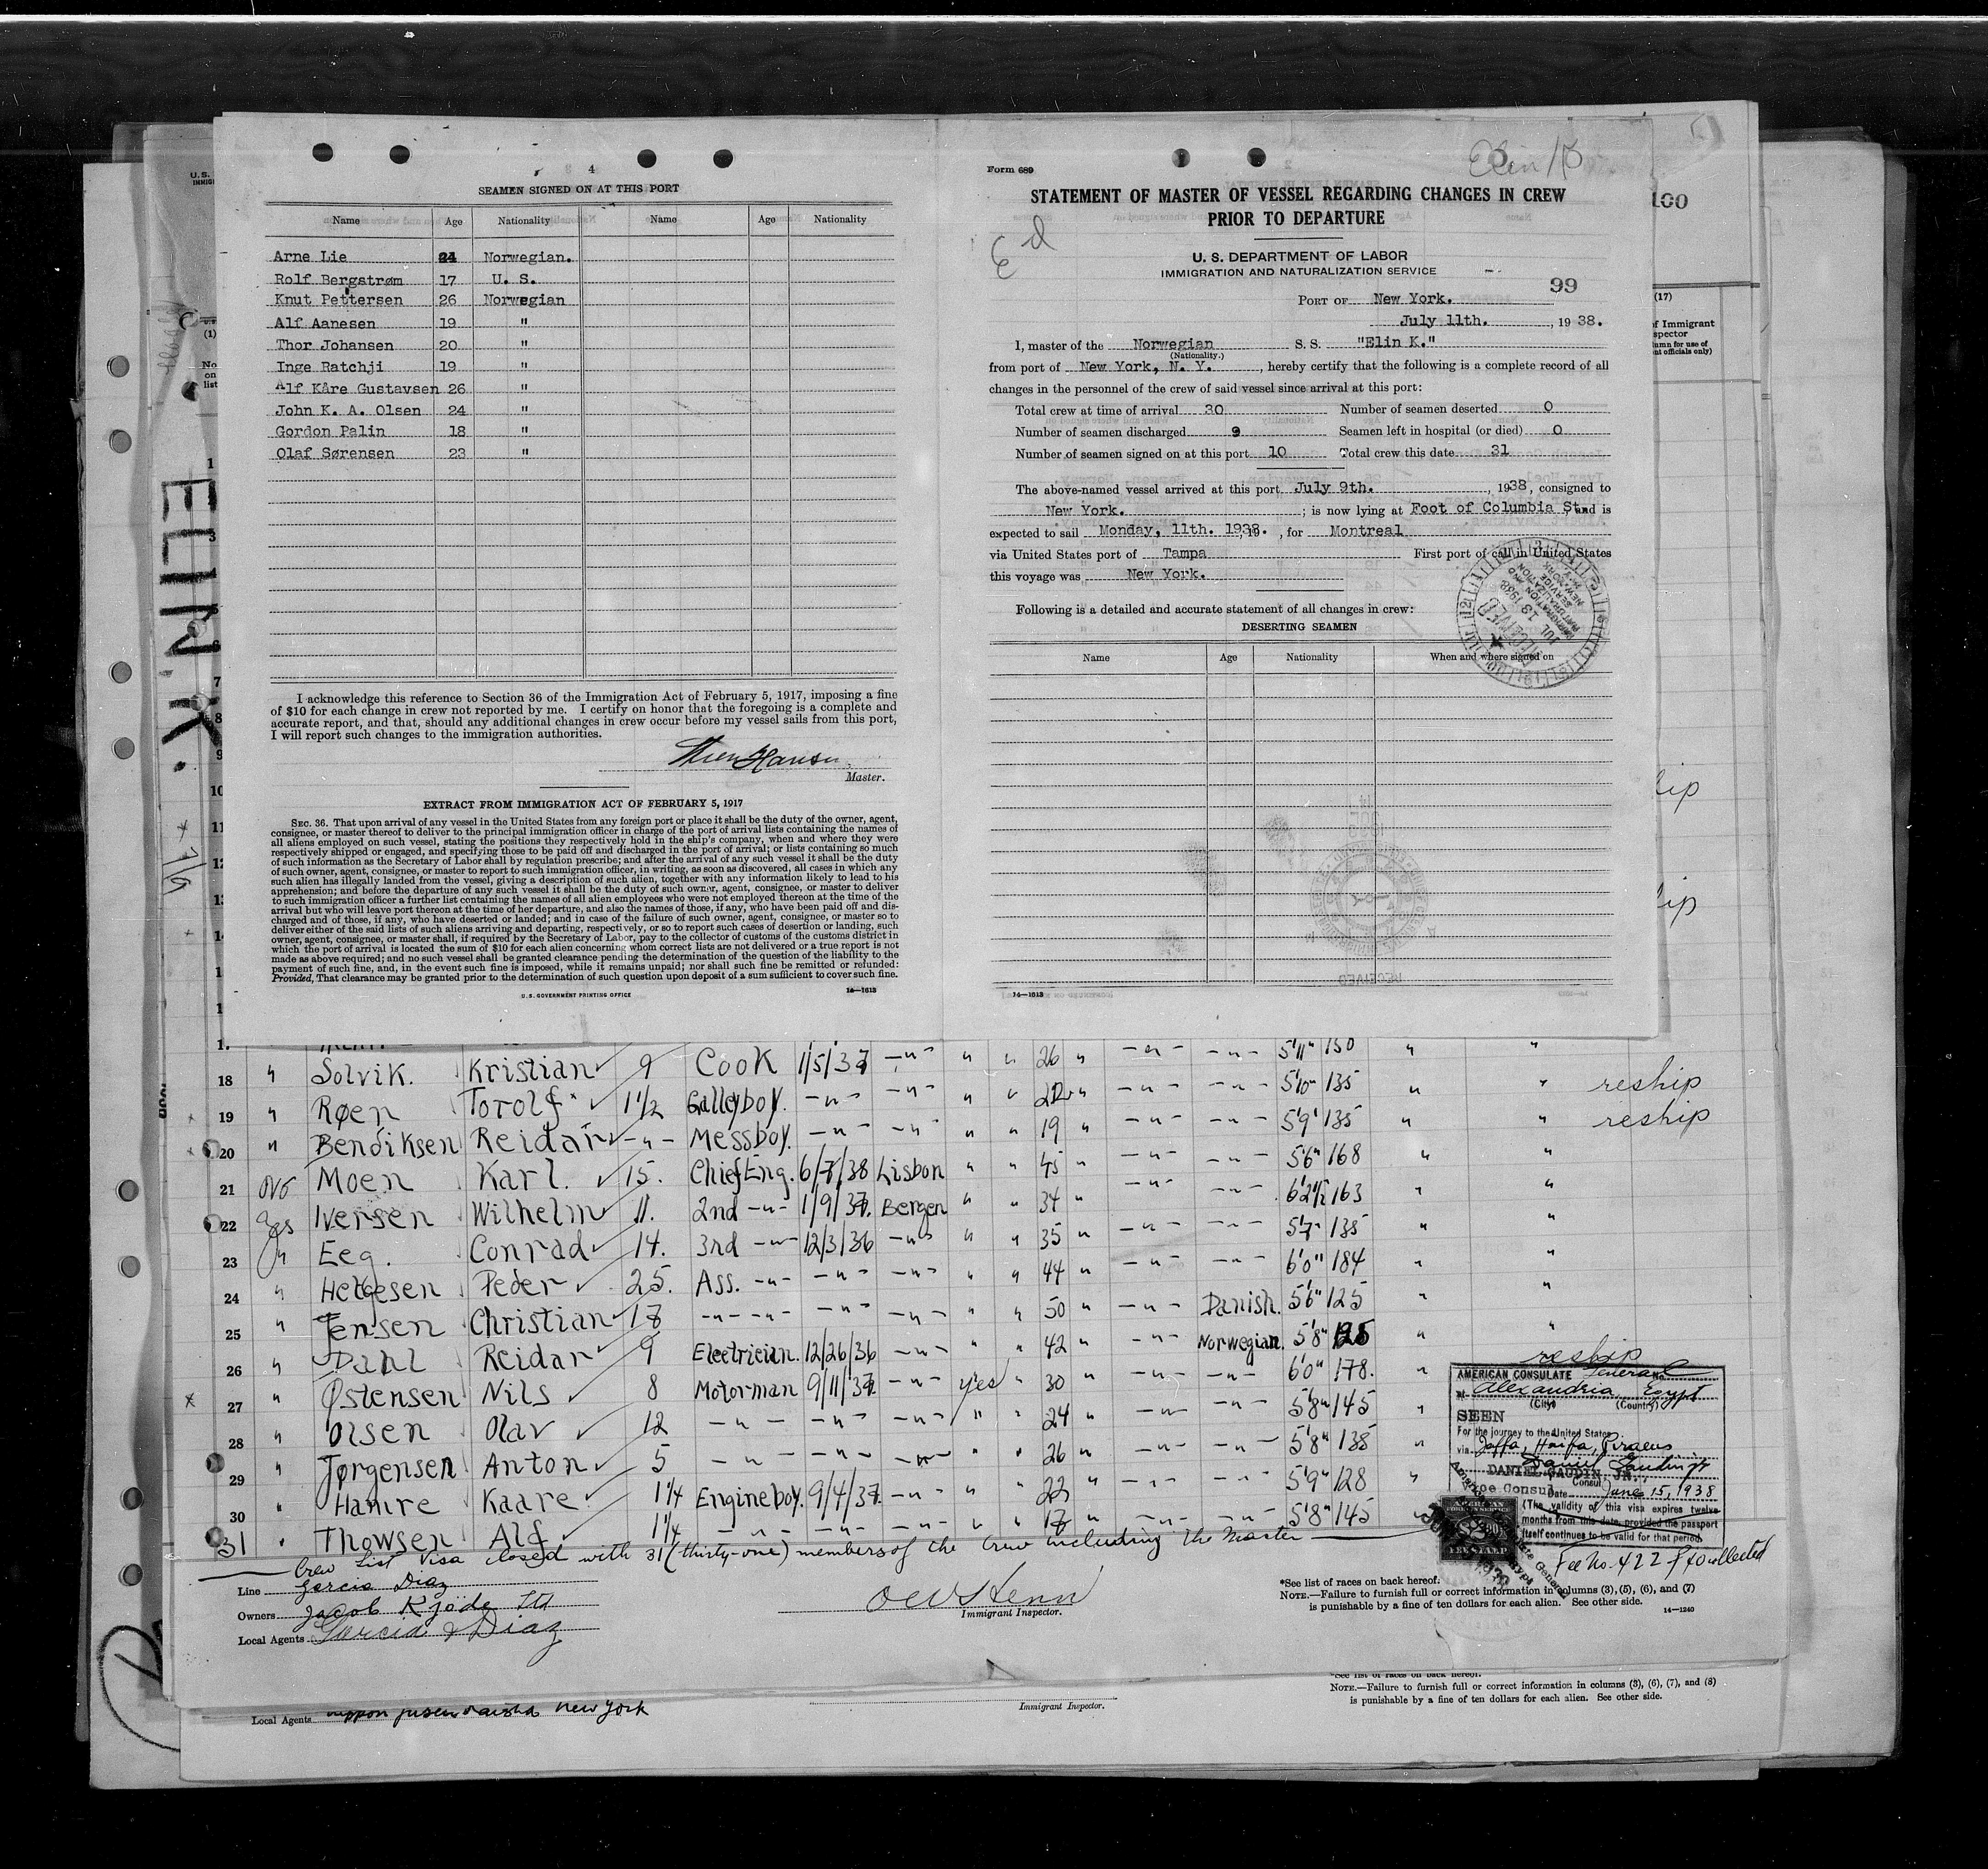 4
SEAMEN SIGNED ON AT THIS PORT
Name Age Nationality Name Age Nationality
Arne Lie 24 Norwegian.
Rolf Bergstrøm 17 U. S.
Knut Pettersen 26 Norwegian
Alf Aanesen 19 "
Thor Johansen 20 "
Inge Ratchji 19 "
Alf Kåre Gustavsen 26 "
John K. A. Olsen 24 "
Gordon Palin 18 "
Olaf Sørensen 23 "
I acknowledge this reference to Section 36 of the Immigration Act of February 5, 1917, imposing a fine
of $10 for each change in crew not reported by me. I certify on honor that the foregoing is a complete and
accurate report, and that, should any additional changes in crew occur before my vessel sails from this port,
I will report such changes to the immigration authorities.
Hansen
Master.
EXTRACT FROM IMMIGRATION ACT OF FEBRUARY 5, 1917
SEC. 36. That upon arrival of any vessel in the United States from any foreign port or place it shall be the duty of the owner, agent,
consignee, or master thereof to deliver to the principal immigration officer in charge of the port of arrival lists containing the names of
all aliens employed on such vessel, stating the positions they respectively hold in the ship's company, when and where they were
respectively shipped or engaged, and specifying those to be paid off and discharged in the port of arrival; or lists containing so much
of such information as the Secretary of Labor shall by regulation prescribe; and after the arrival of any such vessel it shall be the duty
of such owner, agent, consignee, or master to report to such immigration officer, in writing, as soon as discovered, all cases in which any
such alien has illegally landed from the vessel, giving a description of such alien, together with any information likely to lead to his
apprehension; and before the departure of any such vessel it shall be the duty of such owner, agent, consignee, or master to deliver
to such immigration officer a further list containing the names of all alien employees who were not employed thereon at the time of the
arrival but who will leave port thereon at the time of her departure, and also the names of those, if any, who have been paid off and dis-
charged and of those, if any, who have deserted or landed; and in case of the failure of such owner, agent, consignee, or master so to
deliver either of the said lists of such aliens arriving and departing, respectively, or so to report such cases of desertion or landing, such
owner, agent, consignee, or master shall, if required by the Secretary of Labor, pay to the collector of customs of the customs district in
which the port of arrival is located the sum of $10 for each alien concerning whom correct lists are not delivered or a true report is not
made as above required; and no such vessel shall be granted clearance pending the determination of the question of the liability to the
payment of such fine, and, in the event such fine is imposed, while it remains unpaid; nor shall such fine be remitted or refunded:
Provided, That clearance may be granted prior to the determination of such question upon deposit of a sum sufficient to cover such fine.
U.S. GOVERNMENT PRINTING OFFICE 14—1613
Elin K
Form 689
STATEMENT OF MASTER OF VESSEL REGARDING CHANGES IN CREW
PRIOR TO DEPARTURE
Ed
U. S. DEPARTMENT OF LABOR
IMMIGRATION AND NATURALIZATION SERVICE
99
PORT OF New York.
July 11th. , 1938.
I, master of the Norwegian S. S. "Elin K."
(Nationality.)
from port of New York, N. Y. , hereby certify that the following is a complete record of all
changes in the personnel of the crew of said vessel since arrival at this port:
Total crew at time of arrival 30 Number of seamen deserted 0
Number of seamen discharged 9 Seamen left in hospital (or died) 0
Number of seamen signed on at this port 10 Total crew this date 31
The above-named vessel arrived at this port July 9th. , 1938, consigned to
New York. ; is now lying at Foot of Columbia St. and is
expected to sail Monday, 11th. 1938. , 19 , for Montreal
via United States port of Tampa First port of call in United States
this voyage was New York.
Following is a detailed and accurate statement of all changes in crew:
DESERTING SEAMEN
Name Age Nationality When and where signed on
RECEIVED
JUL 13 1938
14—1613
100
(17)
ELIN. K.
18 " Solvik. Kristian 9 Cook 1/5/37 -"- " " 26 " -"- -"- 5'11" 150 " "
19 " Røen Torolf 1 1/2 Galleyboy. -"- -"- " " 20 " -"- -"- 5'10" 135 " " reship
20 " Bendiksen Reidar -"- Messboy. -"- -"- " " 19 " -"- -"- 5'9" 135 " " reship
21 no Moen Karl. 15. Chief Eng. 6/7/38 Lisbon " " 45 " -"- -"- 5'6" 168 " "
22 yes Iversen Wilhelm 11. 2nd -"- 1/9/37. Bergen " " 34 " -"- 6'2 1/2 163 " "
23 " Eeg. Conrad 14. 3rd -"- 12/3/36 -"- " " 35 " -"- -"- 5'7" 135 " "
24 " Helgesen Peder 25. Ass. -"- -"- -"- " " 44 " -"- -"- 6'0" 184 " "
25 " Jensen Christian 18 -"- -"- -"- -"- " " 50 " -"- Danish. 5'6" 125 " "
26 " Dahl Reidar 9 Electrician. 12/26/36 -"- " " 42 " -"- Norwegian. 5'8" 125 " "
27 " Østensen Nils 8 Motorman 9/11/37. -"- yes " 30 " -"- 6'0" 178. " reship
28 " Olsen Olav 12 -"- -"- -"- " " 24 " -"- -"- 5'8" 145 "
29 " Jørgensen Anton 5 -"- -"- -"- " " 26 " -"- -"- 5'8" 138 "
30 " Hamre Kaare 1 1/4 Engineboy. 9/4/37. -"- " " 22 " -"- -"- 5'9" 128 "
31 " Thowsen Alf 1 1/4 -"- -"- -"- " " 17 " -"- -"- 5'8" 145 "
Crew List Visa closed with 31 (thirty-one) members of the Crew including the Master
Line Garcia Diaz
Owners Jacob Kjöde Ltd
Local Agents Garcia & Diaz
Immigrant Inspector.
AMERICAN CONSULATE General
at Alexandria, Egypt
(City) (Country)
SEEN
For the journey to the United States
via Jaffa, Haifa, Piraeus
DANIEL GAUDIN, JR.,
Vice Consul
Date June 15, 1938
(The validity of this visa expires twelve
months from this date, provided the passport
itself continues to be valid for that period.
AMERICAN
FOREIGN SERVICE
FEE STAMP
Fee No. 422 collected
*See list of races on back hereof.
NOTE.—Failure to furnish full or correct information in columns (3), (5), (6), and (7)
is punishable by a fine of ten dollars for each alien. See other side.
14—1240
*See list of races on back hereof.
NOTE.—Failure to furnish full or correct information in columns (3), (6), (7), and (8)
is punishable by a fine of ten dollars for each alien. See other side.
Local Agents Nippon Yusen Kaisha New York
Immigrant Inspector.